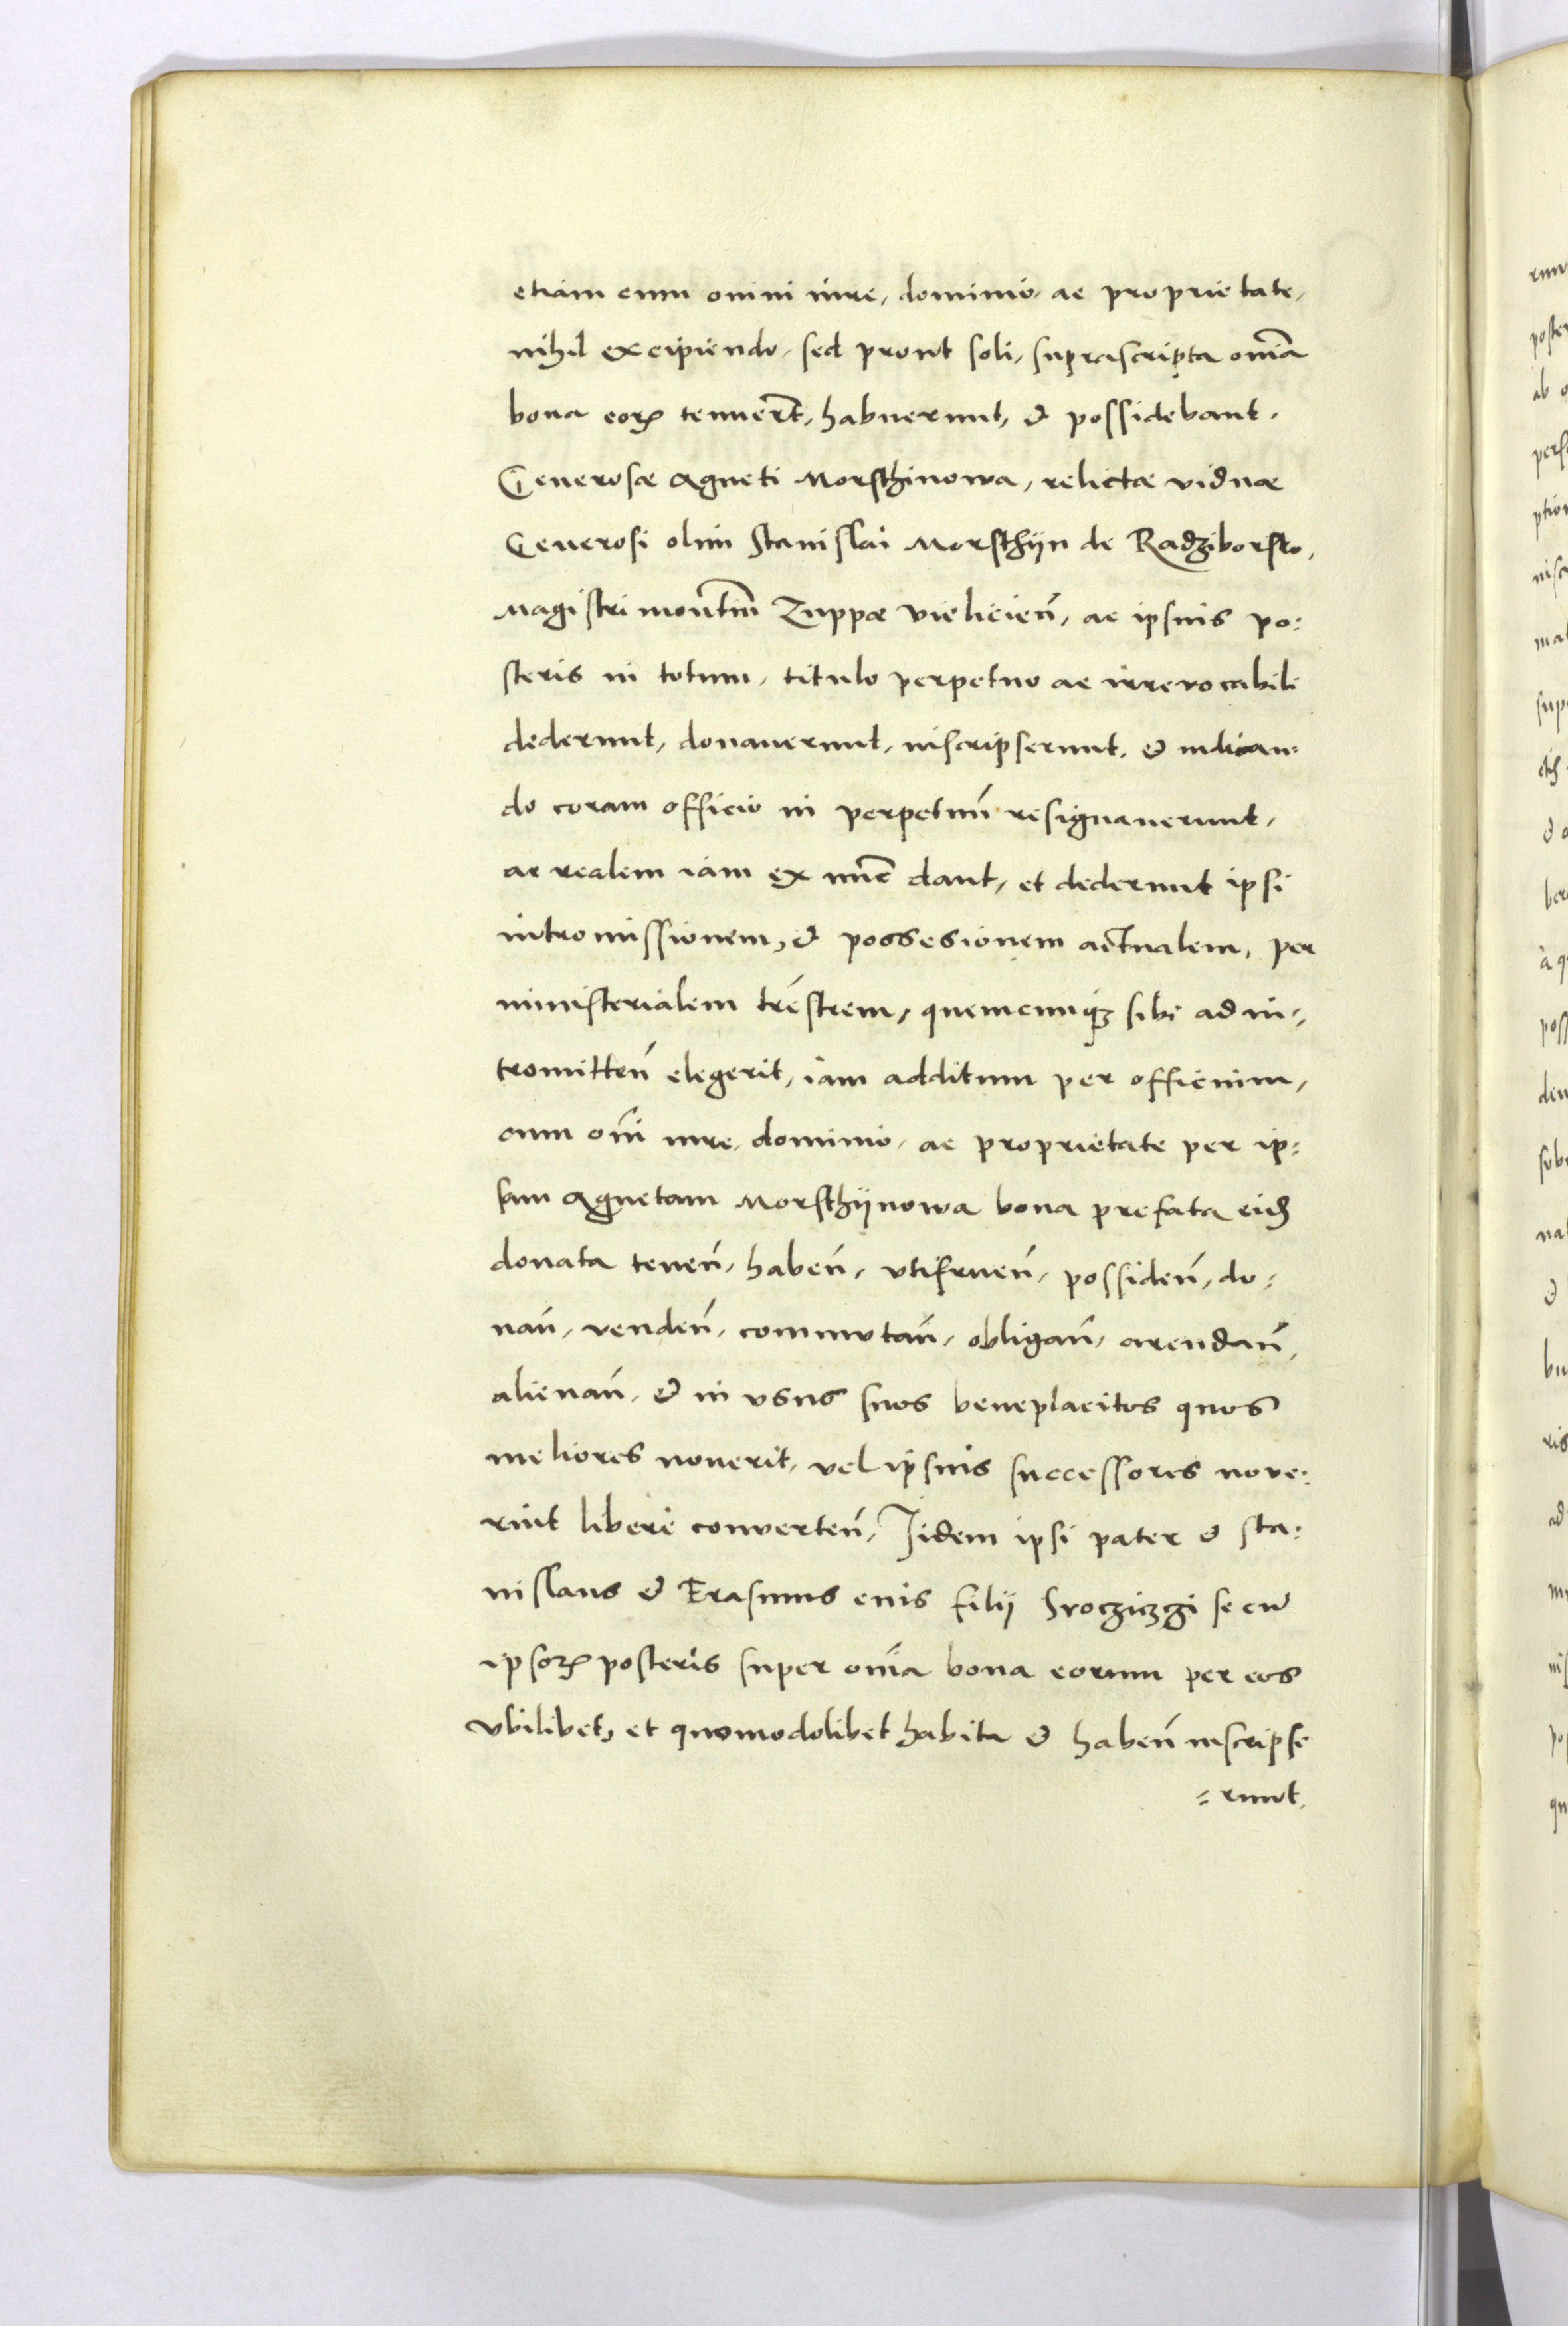 etiam cum omni iure, dominio ac proprietate,
nihil excipiendo, sed prout soli, suprascripta om̃ia
bona eoꝝ tenuer̃t, habuerunt, & possidebant.
Generosæ Agneti Morsthinowa, relictæ viduæ
Generosi olim Stanislai Morsthyn de Radziborsko,
Magistri montiũ Zuppæ Vielicień, ac ipsius po:
steris in totum, titulo perpetuo ac irrevocabili
dederunt, donauerunt, inscripserunt, & iudican:
do coram officio in perpetuũ resignauerunt,
ac realem iam ex nũc dant, et dederunt ipsi
intromissionem, & possesionem actualem, per
ministerialem tr̃estrem, quemcunqꝫ sibi ad in:,
tromitteñ elegerit, iam additum per officium,
cum om̃i iure, dominio, ac proprietate per ip:
sam Agnetam Morsthynowa bona prefata eidẽ
donata teneñ, habeñ, vtifrueñ, possideñ, do:
nañ, vendeñ, commutañ, obligañ, arendañ,
alienañ, & in vsus suos beneplacitos quos
meliores nouerit, vel ipsius successores noue:
rint libere converteñ, Iidem ipsi pater & Sta:
nislaus & Erasmus eius filij Srocziczgi se cũ
ipsoꝝ posteris super om̃ia bona eorum per eos
vbilibet, et quomodolibet habita & habeñ inscripse
=runt.